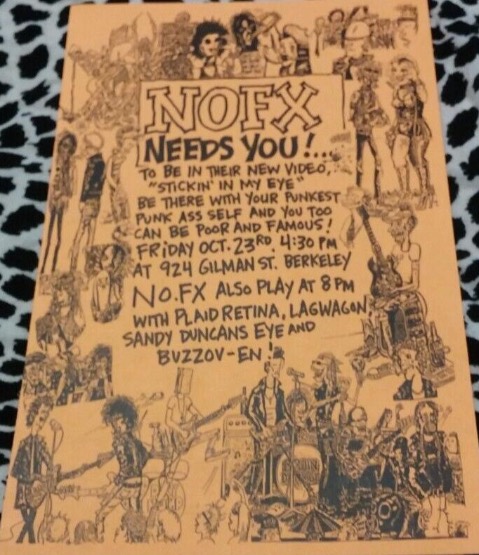 NOFX
NEEDS YOU!...
TO BE IN THEIR NEW VIDEO,
"STICKIN' IN MY EYE"
BE THERE WITH YOUR PUNKEST
PUNK ASS SELF AND YOU TOO
CAN BE POOR AND FAMOUS!
FRIDAY OCT. 23RD, 4:30 PM
AT 924 GILMAN ST. BERKELEY
NO.FX ALSO PLAY AT 8 PM
WITH PLAID RETINA, LAGWAGON,
SANDY DUNCANS EYE AND
BUZZOV-EN!